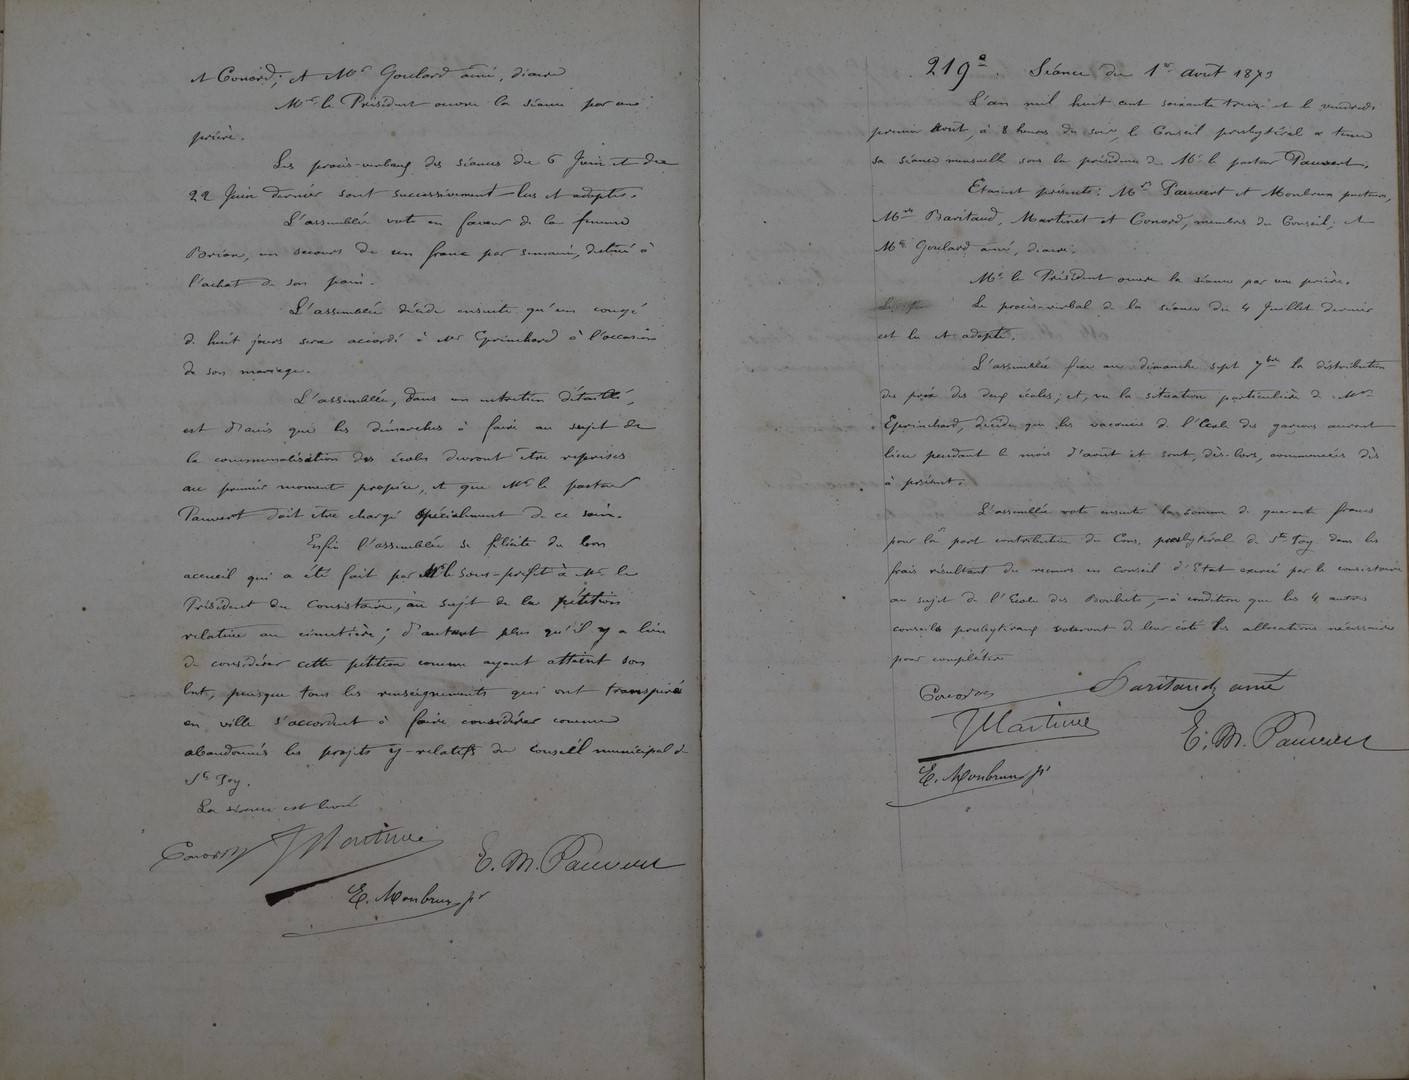 et Conord; et Mr Goulard aîné, diacre
Mr le Président ouvre la séance par une
prière.
Les procès-verbaux des séances du 6 Juin et du
22 Juin dernier sont successivement lus et adoptés.
L'assemblée vote en faveur de la femme
Brian, un secours de un franc par semaine, destiné à
l'achat de son pain.
L'assemblée décide ensuite qu'un congé
de huit jours sera accordé à Mr Eprinchard à l'occasion
de son mariage.
L'assemblée, dans un entretien détaillé,
est d'avis que les démarches à faire au sujet de
la communalisation des écoles devront être reprises
au premier moment propice, et que Mr le pasteur
Pauvert doit être chargé spécialement de ce soin.
Enfin l'assemblée se félicite du bon
accueil qui a été fait par Mr le Sous-préfet à Mr le
Président du Consistoire, au sujet de la pétition
relative au cimetière; d'autant plus qu'il y a lieu
de considérer cette pétition comme ayant atteint son
but, puisque tous les renseignements qui ont transpiré
en ville s'accordent à faire considérer comme
abandonnés les projets y-relatifs du Conseil municipal de
Ste Foy.
La séance est levée
Conord J Martinet E. M. Pauvert
E. Monbrun pr
219e. Séance du 1er août 1873
L'an mil huit cent soixante treize et le vendredi
premier Août, à 8 heures du soir, le Conseil presbytéral a tenu
sa séance mensuelle sous la présidence de Mr le pasteur Pauvert.
Etaient présents: Mrs Pauvert et Monbrun pasteurs,
Mrs Baritaud, Martinet et Conord, membres du Conseil; et
Mr Goulard aîné, diacre.
Mr le Président ouvre la séance par une prière.
Le procès-verbal de la séance du 4 Juillet dernier
est lu et adopté.
L'assemblée fixe au dimanche sept 7bre la distribution
des prix des deux écoles; et, vu la situation particulière de Mr
Eprinchard, décide que les vacances de l'Ecole des garçons auront
lieu pendant le mois d'août et sont, dès-lors, commencées dès
à présent.
L'assemblée vote ensuite la somme de quarante francs
pour la part contributive du Cons. presbytéral de Ste Foy dans les
frais résultant du recours en Conseil d'Etat exercé par le consistoire
au sujet de l'Ecole des Bouhets, à condition que les 4 autres
conseils presbytéraux voteront de leur côté les allocations nécessaires
pour compléter
Conord Baritaud aîné
J Martinet E. M. Pauvert
E. Monbrun pr